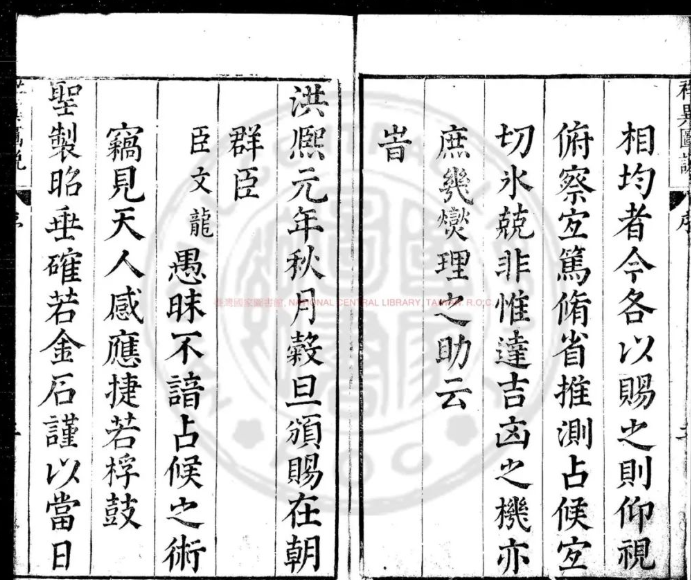 相均者今各以賜之則仰視
俯察宜篤脩省推測占候宜
切氷兢非惟達吉凶之機亦
庶幾燮理之助云
旹
洪熈元年秋月穀旦頒賜在朝
群臣
臣文龍愚昧不諳占候之術
竊見天人感應捷若桴鼓
聖製昭垂確若金石謹以當日
NATIONAL CENTRAL LIBRARY, TAIWAN R.O.C.